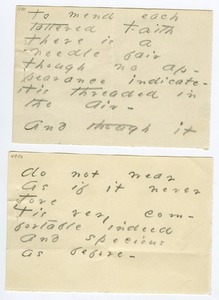 To mend each
tattered Faith
there is a
needle fair
though no ap-
pearance indicate -
tis threaded in
the Air -
And though it
do not wear
As if it never
Tore
Tis very com-
fortable indeed
And spacious
as before -